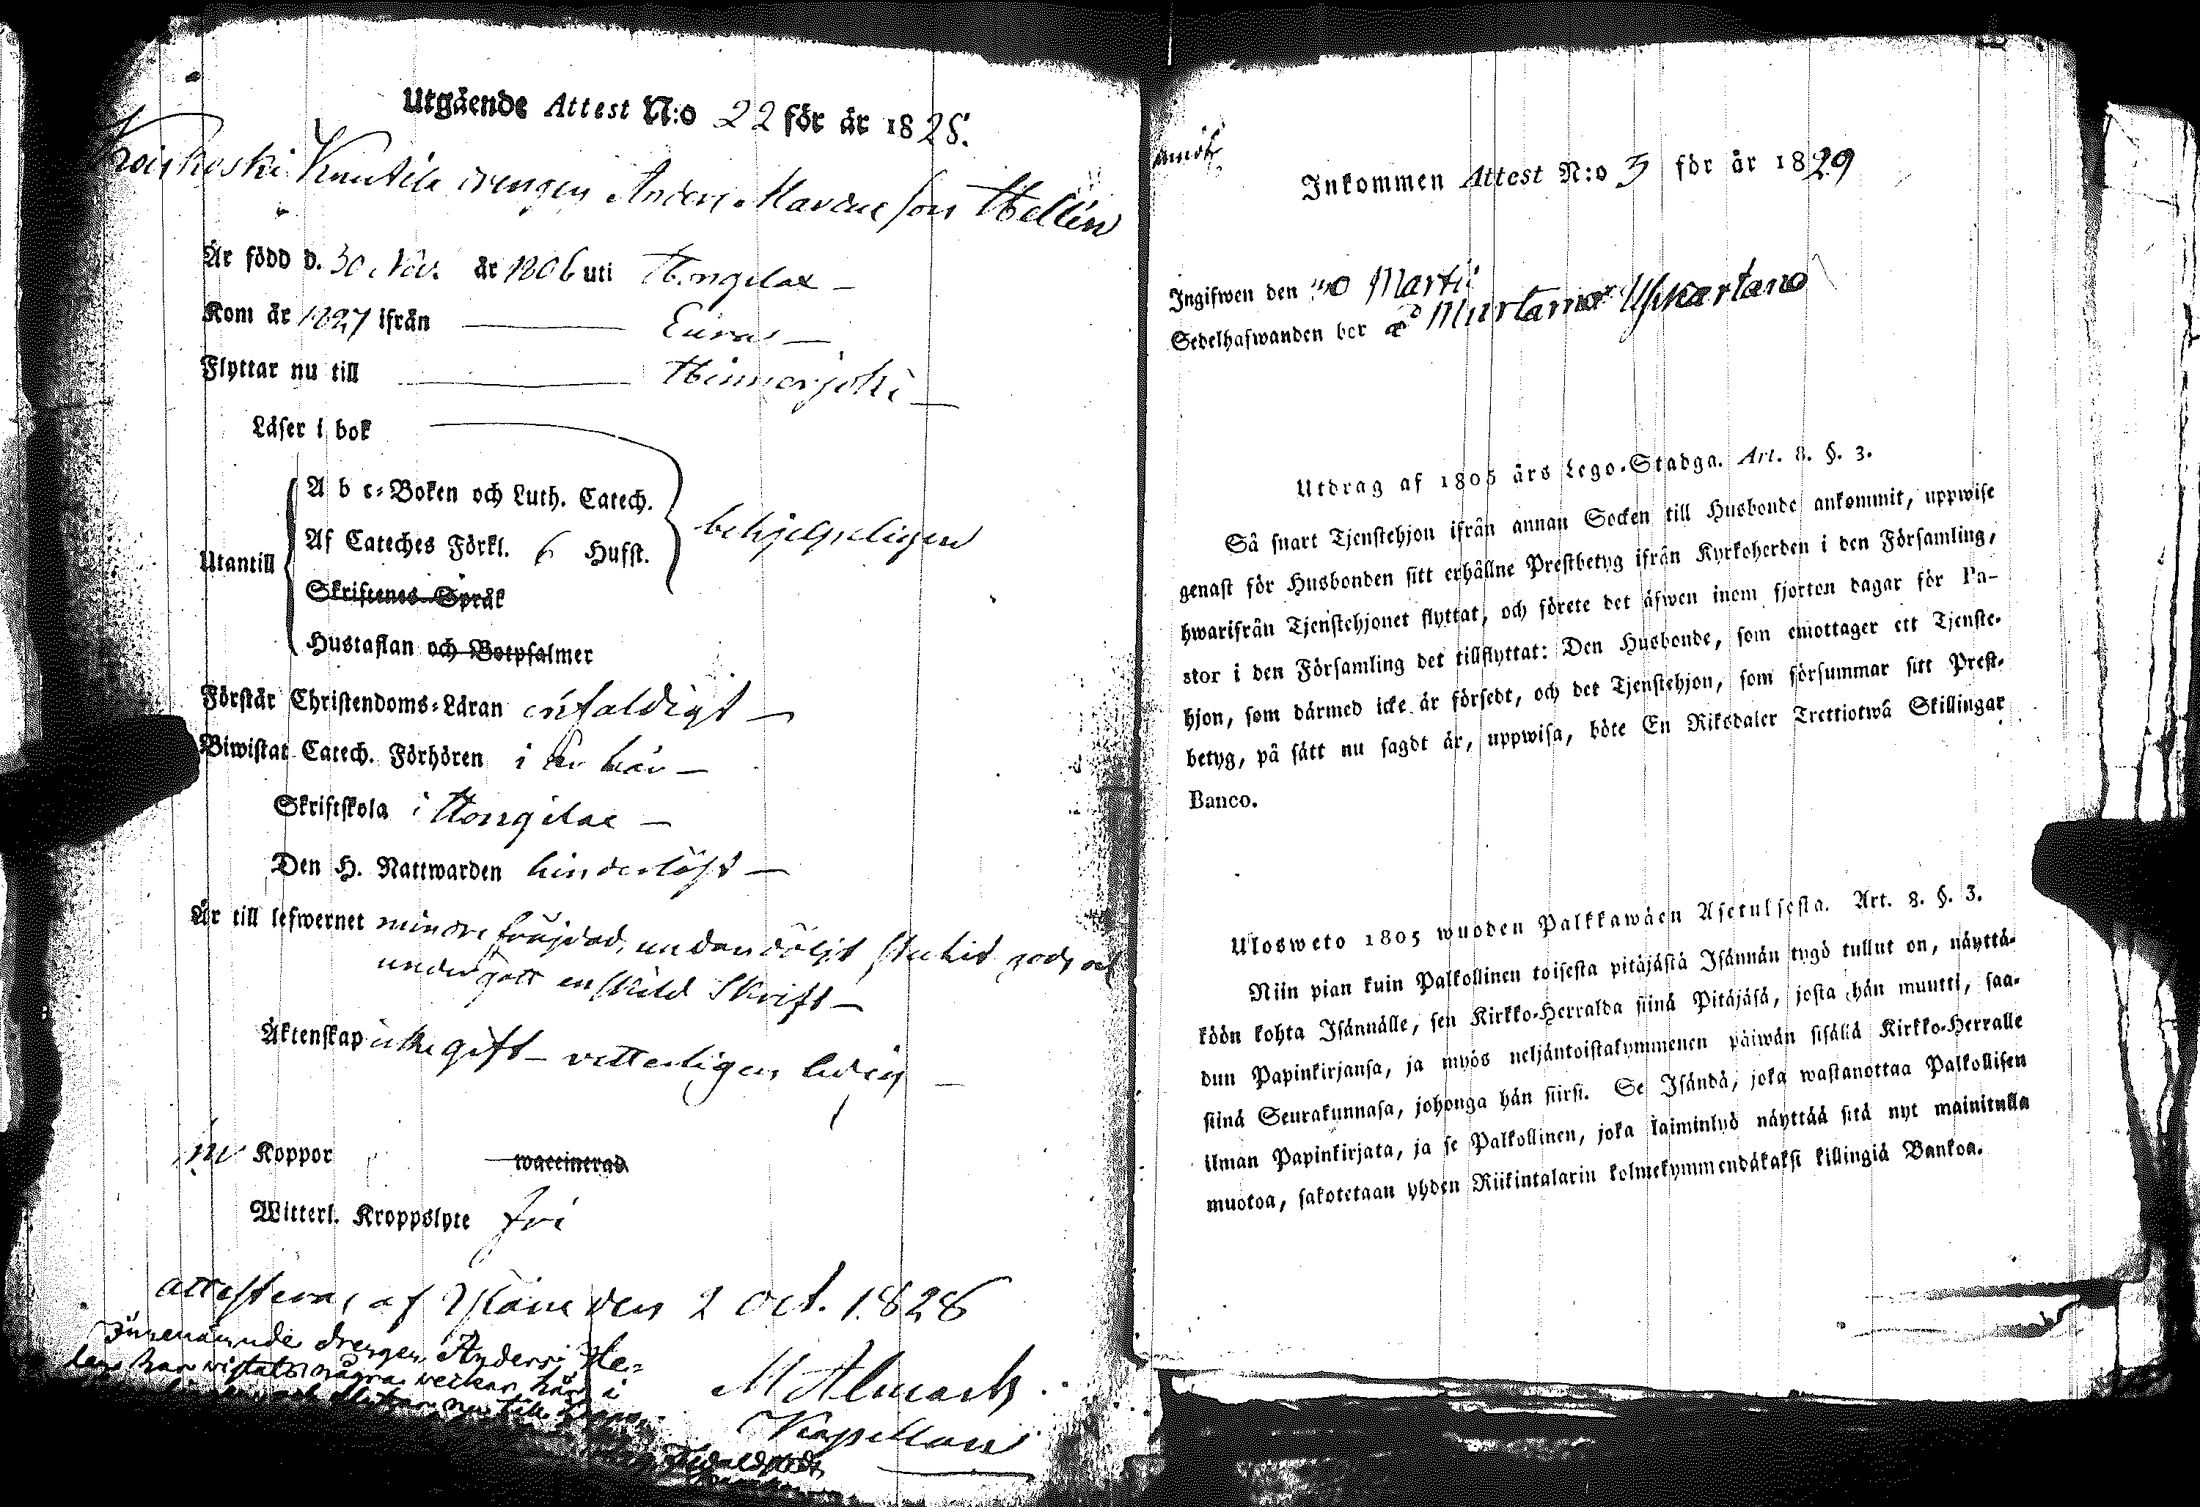 Utgående Attest N:o 22 för år 1828.
Knuttila drengen Anders Marcusson Hellén
Är född d. 30 Nov. år 1806 uti Hongilax –
Kom år 1827 ifrån Eura –
Flyttar nu till Hinnerjoki –
Läser i bok
A b c-Boken och Luth. Catech.
behjelpeligen
Af Cateches Förkl. 6 Hufst.
Utantill
Skriftenes Språk
Hustaflan och Botpsalmer
Förstår Christendoms-Läran enfaldigt –
Biwistat Catech. Förhören i år här –
Skriftskola i Hongilax –
Den H. Nattwarden hinderlöst –
Är till lefwernet mindre fräjdad, undandöljt stulit gods och
undergått enskild Skrift –
Äktenskap icke gift – vetterligen ledig –
Koppor waccinerad
Witterl. Kroppslyte fri
attesteras af den 2 Oct. 1828
M Almark
Kapellan
drengen Anders He-
len har vistats några veckor här i
Inkommen Attest N:o 3 för år 1829
Ingifwen den Martii
Sedelhafwanden bor å Murtamo Ylikartano
Utdrag af 1805 års Lego-Stadga. Art. 8. §. 3.
Så snart Tjenstehjon ifrån annan Socken till Husbonde ankommit, uppwise
genast för Husbonden sitt erhållne Prestbetyg ifrån Kyrkoherden i den Församling,
hwarifrån Tjenstehjonet flyttat, och förete det äfwen inom fjorton dagar för Pa-
stor i den Församling det tillflyttat: Den Husbonde, som emottager ett Tjenste-
hjon, som därmed icke är försedt, och det Tjenstehjon, som försummar sitt Prest-
betyg, på sätt nu sagdt är, uppwisa, böte En Riksdaler Trettiotwå Skillingar
Banco.
Ulosweto 1805 wuoden Palkkawäen Asetuksesta. Art. 8. §. 3.
Niin pian kuin Palkollinen toisesta pitäjästä Isännän tygö tullut on, näyttä-
köön kohta Isännälle, sen Kirkko-Herralda siinä Pitäjäsä, josta hän muutti, saa-
dun Papinkirjansa, ja myös neljäntoistakymmenen päiwän sisällä Kirkko-Herralle
siinä Seurakunnasa, johonga hän siirsi. Se Isändä, joka wastanottaa Palkollisen
ilman Papinkirjata, ja se Palkollinen, joka laiminlyö näyttää sitä nyt mainitulla
muotoa, sakotetaan yhden Riikintalarin kolmekymmendäkaksi killingiä Bankoa.